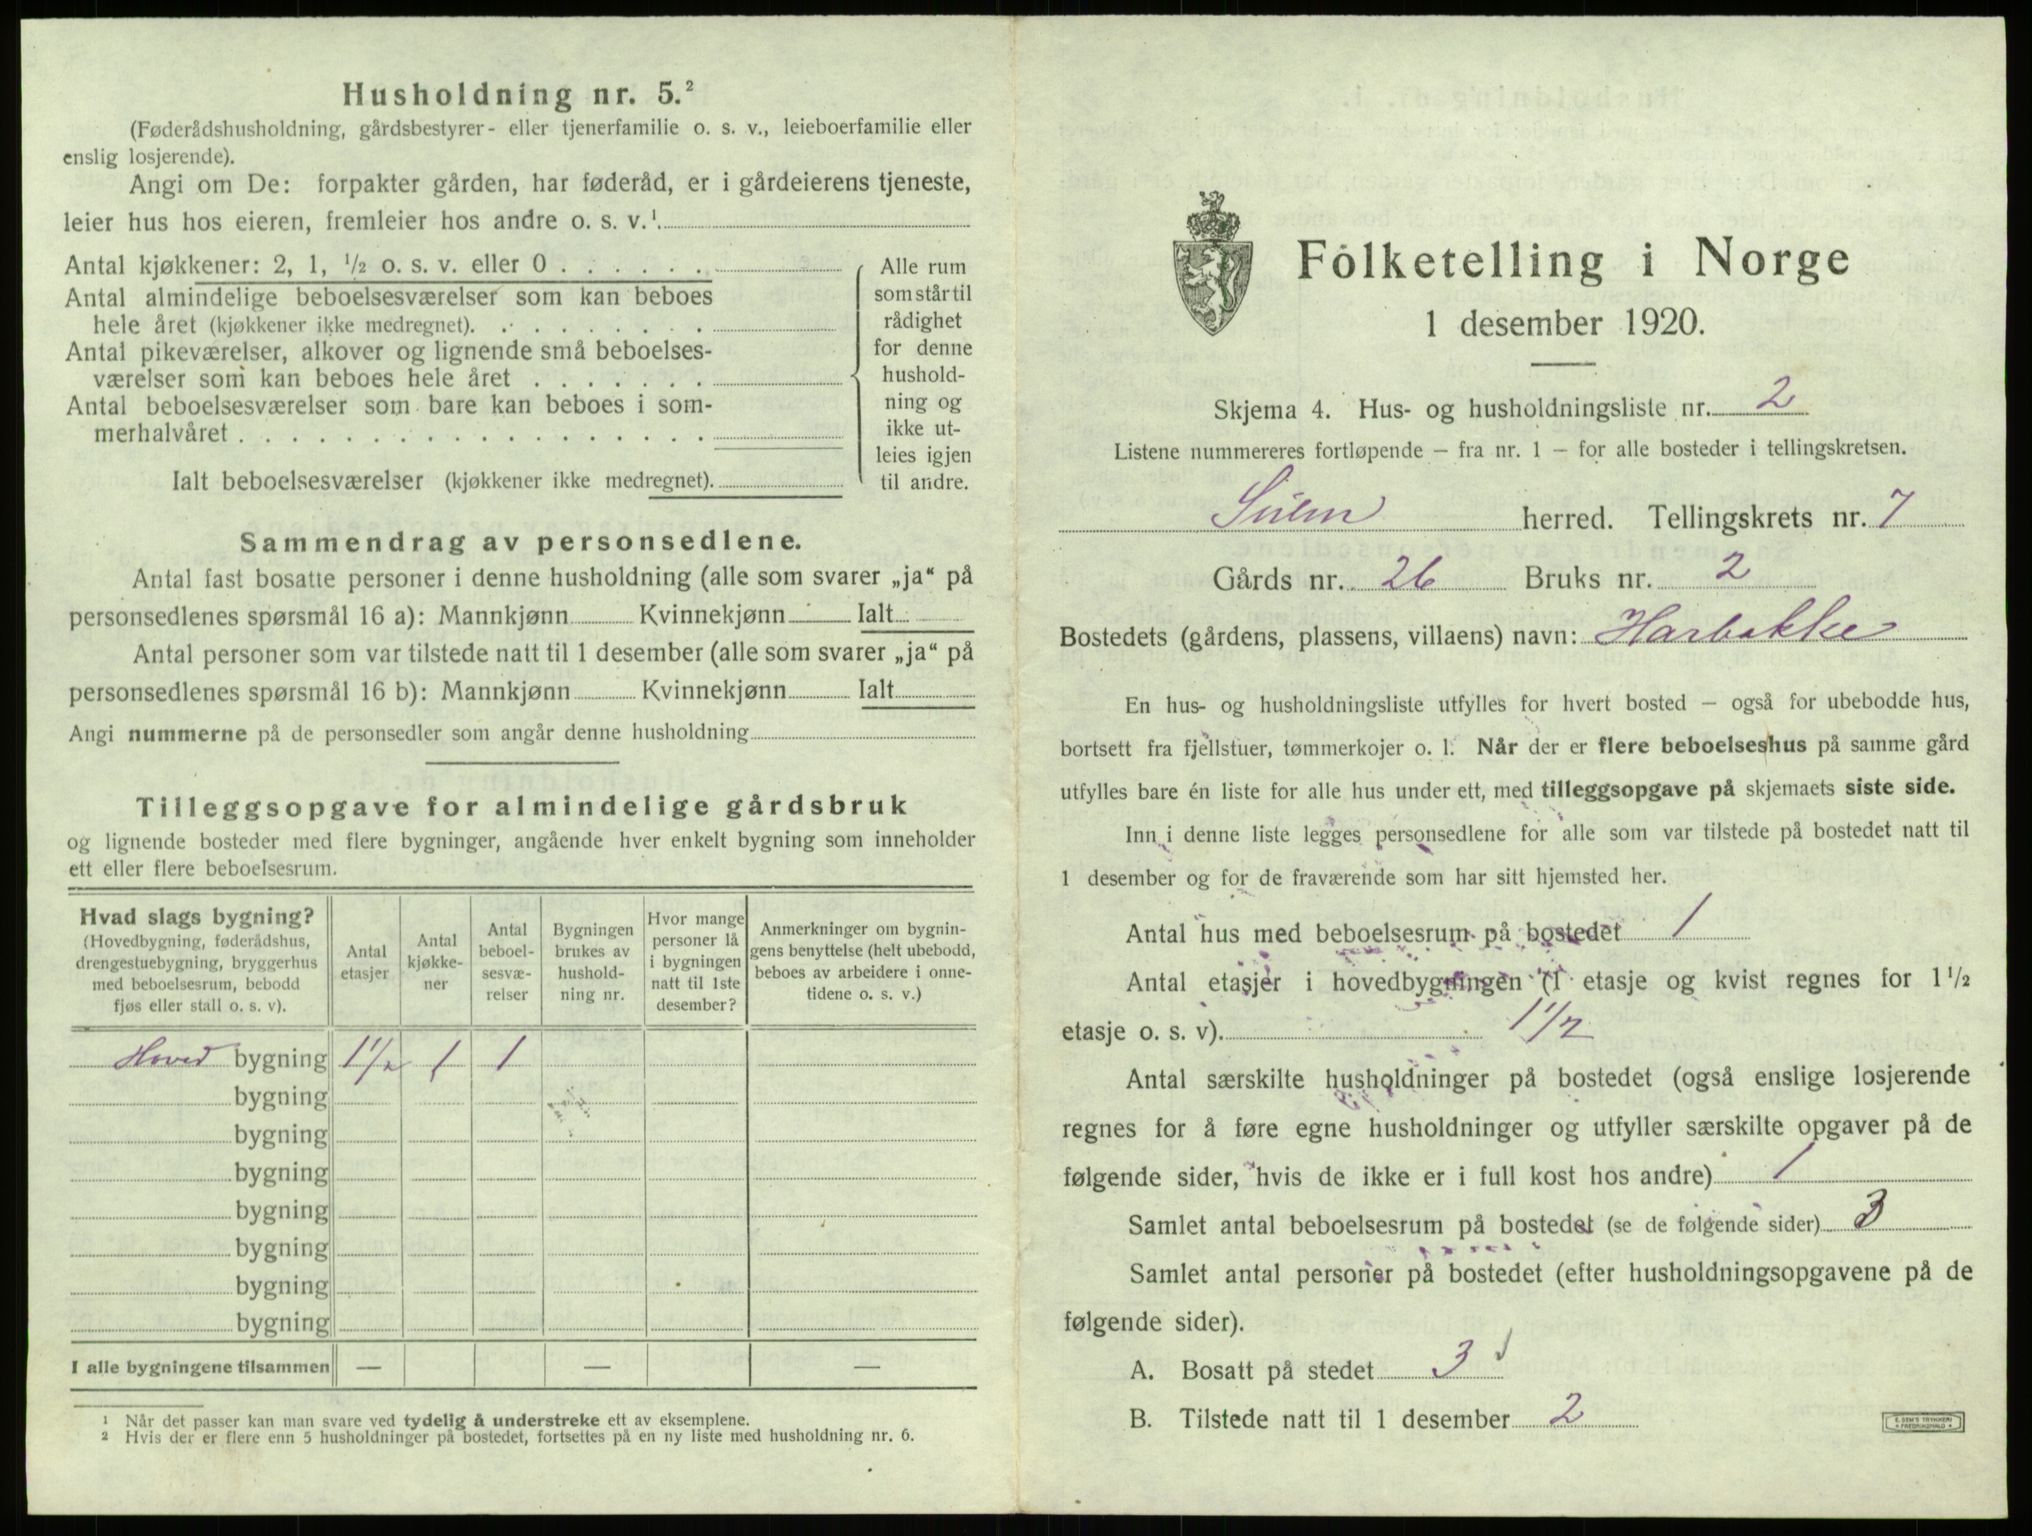 Husholdning nr. 5.²
(Føderådshusholdning, gårdsbestyrer- eller tjenerfamilie o. s. v., leieboerfamilie eller
enslig losjerende).
Angi om De: forpakter gården, har føderåd, er i gårdeierens tjeneste,
leier hus hos eieren, fremleier hos andre o. s. v.¹
Antal kjøkkener: 2, 1, ½ o. s. v. eller 0 . . . . . .
Antal almindelige beboelsesværelser som kan beboes
hele året (kjøkkener ikke medregnet). . . . . . . . .
Antal pikeværelser, alkover og lignende små beboelses-
værelser som kan beboes hele året . . . . . . .
Antal beboelsesværelser som bare kan beboes i som-
merhalvåret . . . . . . . . . . . . . . . . . .
Ialt beboelsesværelser (kjøkkener ikke medregnet).
Alle rum
som står til
rådighet
for denne
hushold-
ning og
ikke ut-
leies igjen
til andre.
Sammendrag av personsedlene.
Antal fast bosatte personer i denne husholdning (alle som svarer „ja“ på
personsedlenes spørsmål 16 a): Mannkjønn Kvinnekjønn Ialt
Antal personer som var tilstede natt til 1 desember (alle som svarer „ja“ på
personsedlenes spørsmål 16 b): Mannkjønn Kvinnekjønn Ialt
Angi nummerne på de personsedler som angår denne husholdning
Tilleggsopgave for almindelige gårdsbruk
og lignende bosteder med flere bygninger, angående hver enkelt bygning som inneholder
ett eller flere beboelsesrum.
Hvad slags bygning?
(Hovedbygning, føderådshus,
drengestuebygning, bryggerhus
med beboelsesrum, bebodd
fjøs eller stall o. s. v).
Antal
etasjer
Antal
kjøkke-
ner
Antal
beboel-
sesvæ-
relser
Bygningen
brukes av
hushold-
ning nr.
Hvor mange
personer lå
i bygningen
natt til 1ste
desember?
Anmerkninger om bygnin-
gens benyttelse (helt ubebodd,
beboes av arbeidere i onne-
tidene o. s. v.)
Hoved bygning 1½ 1 1
bygning
bygning
bygning
bygning
bygning
bygning
bygning
I alle bygningene tilsammen — — —
¹ Når det passer kan man svare ved tydelig å understreke ett av eksemplene.
² Hvis der er flere enn 5 husholdninger på bostedet, fortsettes på en ny liste med husholdning nr. 6.
Folketelling i Norge
1 desember 1920.
Skjema 4. Hus- og husholdningsliste nr. 2
Listene nummereres fortløpende – fra nr. 1 – for alle bosteder i tellingskretsen.
herred. Tellingskrets nr. 7
Gårds nr. 26 Bruks nr. 2
Bostedets (gårdens, plassens, villaens) navn: Harbakke
En hus- og husholdningsliste utfylles for hvert bosted – også for ubebodde hus,
bortsett fra fjellstuer, tømmerkojer o. l. Når der er flere beboelseshus på samme gård
utfylles bare én liste for alle hus under ett, med tilleggsopgave på skjemaets siste side.
Inn i denne liste legges personsedlene for alle som var tilstede på bostedet natt til
1 desember og for de fraværende som har sitt hjemsted her.
Antal hus med beboelsesrum på bostedet 1
Antal etasjer i hovedbygningen (1 etasje og kvist regnes for 1½
etasje o. s. v). 1½
Antal særskilte husholdninger på bostedet (også enslige losjerende
regnes for å føre egne husholdninger og utfyller særskilte opgaver på de
følgende sider, hvis de ikke er i full kost hos andre) 1
Samlet antal beboelsesrum på bostedet (se de følgende sider) 3
Samlet antal personer på bostedet (efter husholdningsopgavene på de
følgende sider).
A. Bosatt på stedet 3
B. Tilstede natt til 1 desember 2
E. SEM'S TRYKKERI
FREDRIKSHALD